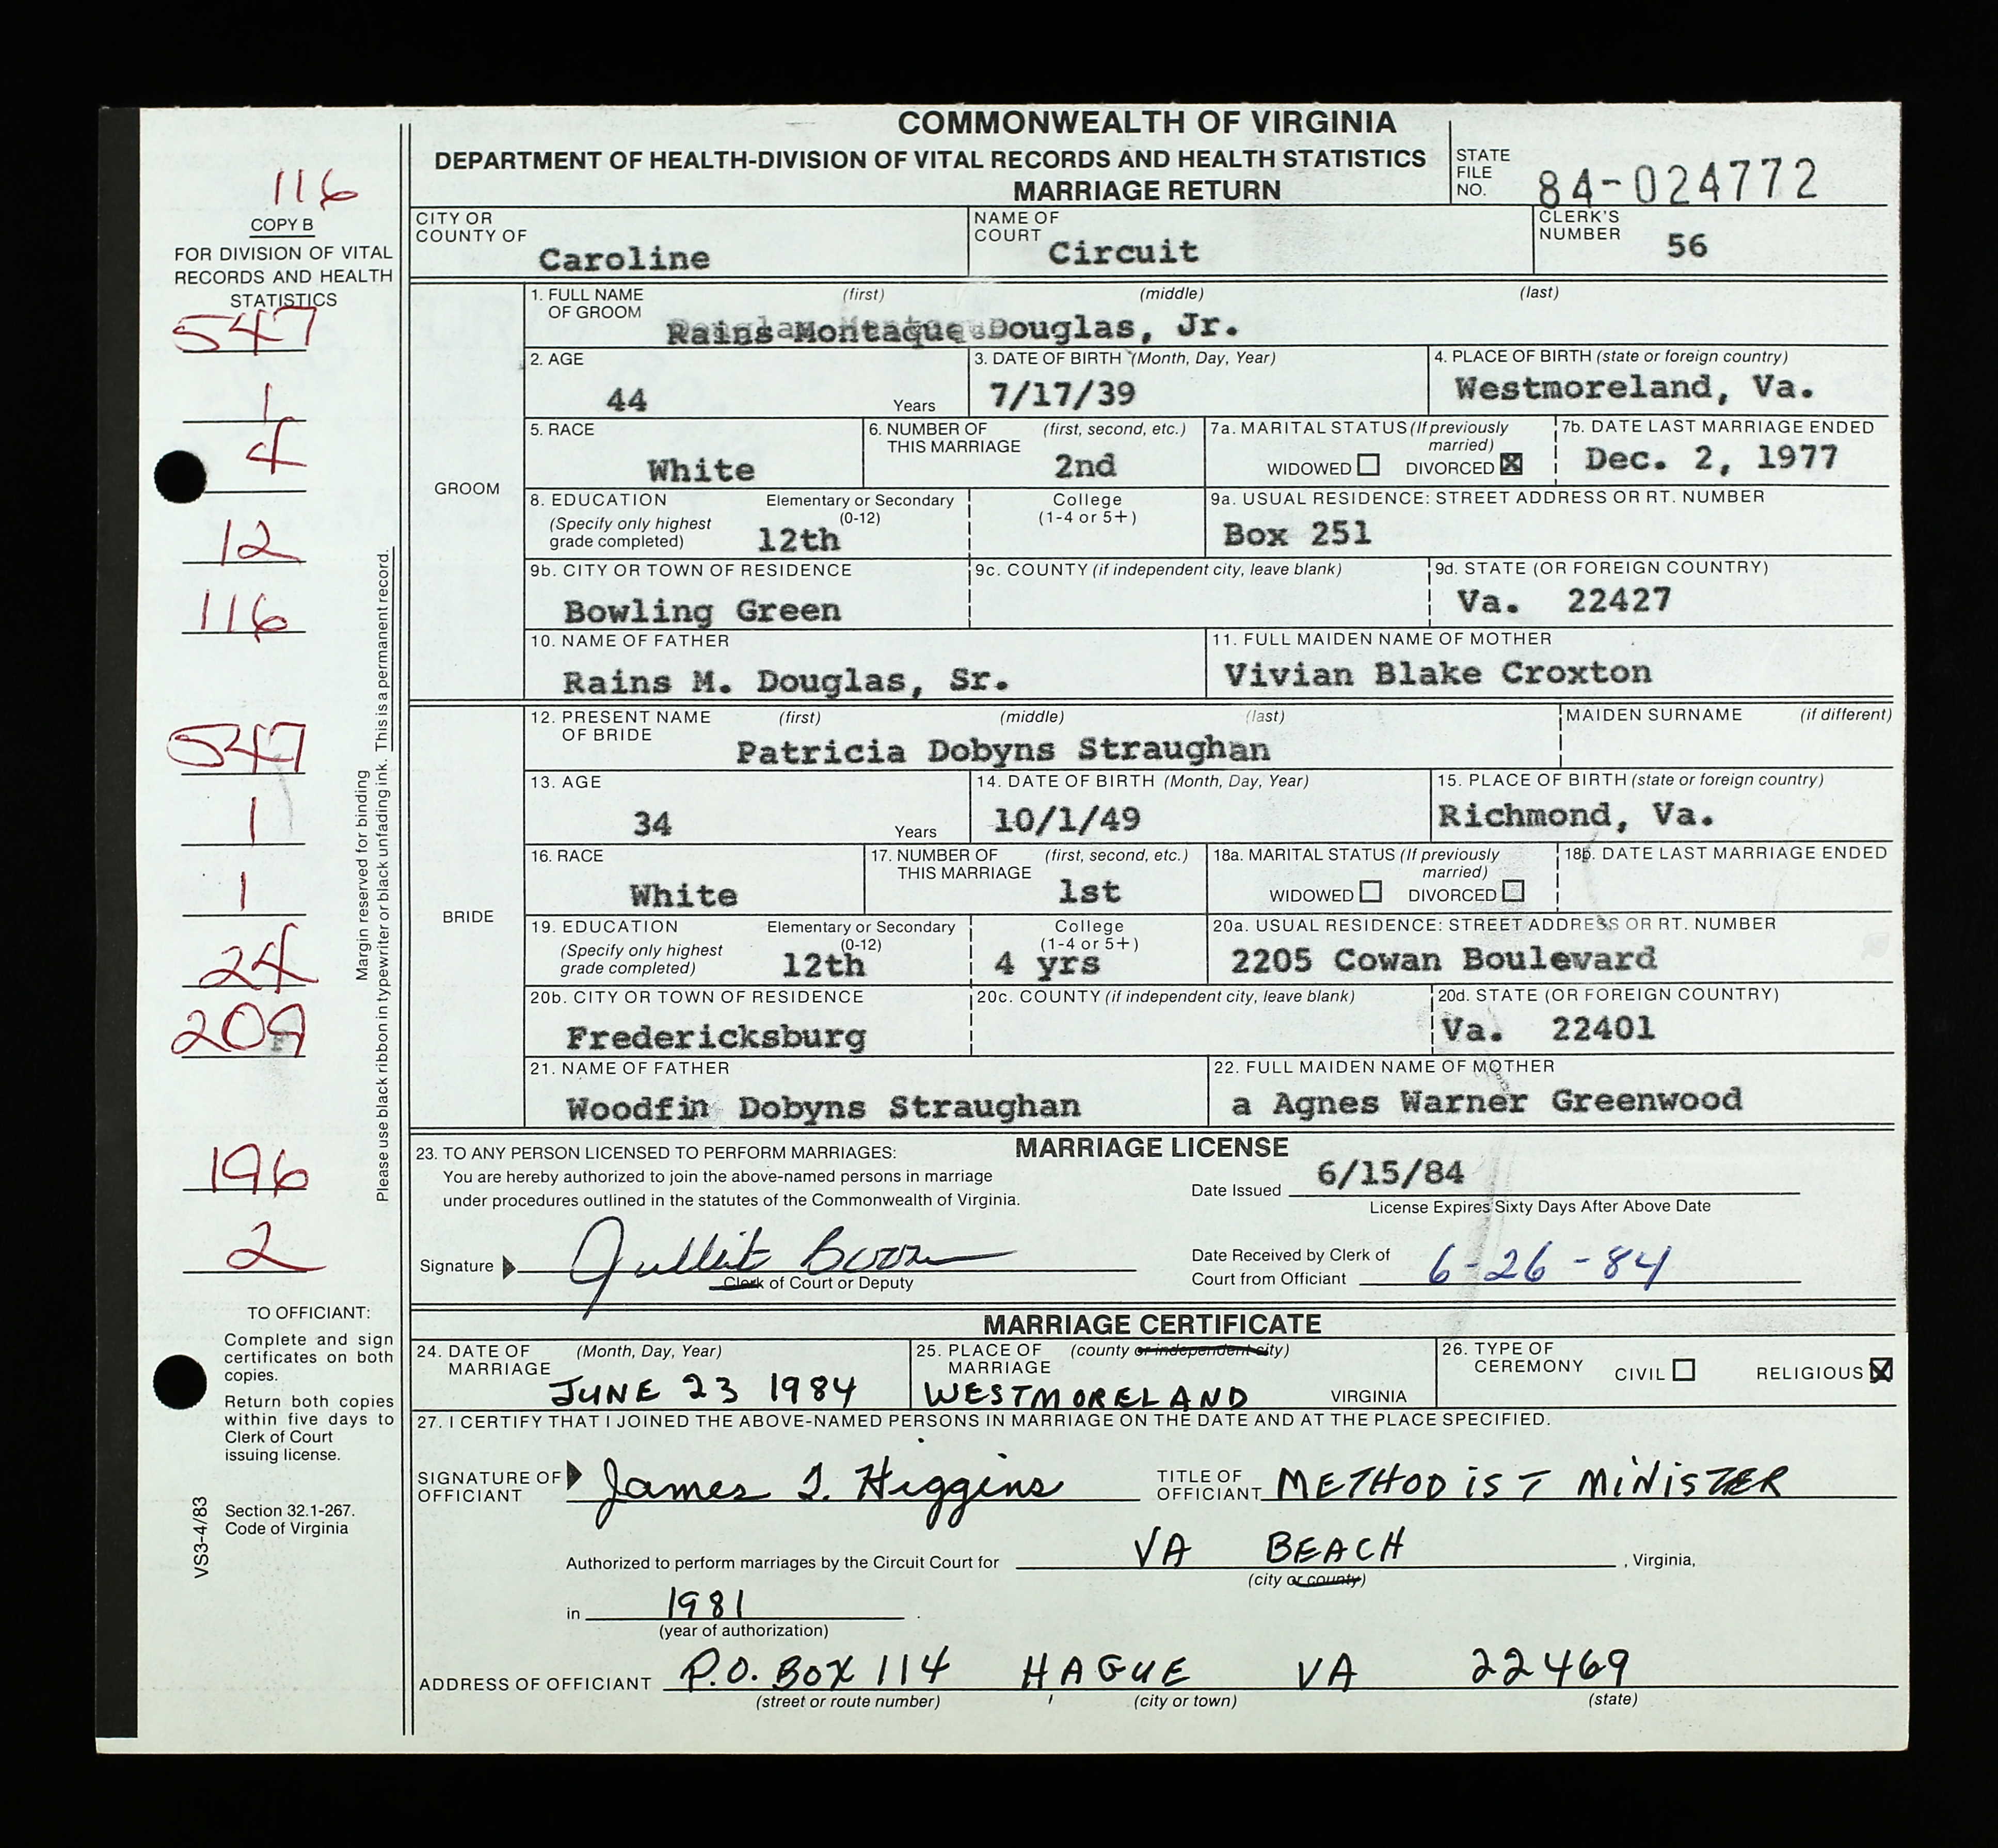 COMMONWEALTH OF VIRGINIA
DEPARTMENT OF HEALTH-DIVISION OF VITAL RECORDS AND HEALTH STATISTICS
MARRIAGE RETURN
STATE FILE NO. 84-024772
116
COPY B
FOR DIVISION OF VITAL
RECORDS AND HEALTH
STATISTICS
547
1
4
12
116
547
1
1
24
209
196
2
Margin reserved for binding
Please use black ribbon in typewriter or black unfading ink. This is a permanent record.
TO OFFICIANT:
Complete and sign
certificates on both
copies.
Return both copies
within five days to
Clerk of Court
issuing license.
Section 32.1-267.
Code of Virginia
VS3-4/83
CITY OR COUNTY OF Caroline
NAME OF COURT Circuit
CLERK'S NUMBER 56
GROOM
1. FULL NAME OF GROOM (first) (middle) (last)
Rains Montaque Douglas, Jr.
2. AGE 44 Years
3. DATE OF BIRTH (Month, Day, Year) 7/17/39
4. PLACE OF BIRTH (state or foreign country) Westmoreland, Va.
5. RACE White
6. NUMBER OF THIS MARRIAGE (first, second, etc.) 2nd
7a. MARITAL STATUS (If previously married) WIDOWED ☐ DIVORCED ☒
7b. DATE LAST MARRIAGE ENDED Dec. 2, 1977
8. EDUCATION (Specify only highest grade completed) Elementary or Secondary (0-12) 12th College (1-4 or 5+)
9a. USUAL RESIDENCE: STREET ADDRESS OR RT. NUMBER Box 251
9b. CITY OR TOWN OF RESIDENCE Bowling Green
9c. COUNTY (if independent city, leave blank)
9d. STATE (OR FOREIGN COUNTRY) Va. 22427
10. NAME OF FATHER Rains M. Douglas, Sr.
11. FULL MAIDEN NAME OF MOTHER Vivian Blake Croxton
BRIDE
12. PRESENT NAME OF BRIDE (first) (middle) (last) Patricia Dobyns Straughan
MAIDEN SURNAME (if different)
13. AGE 34 Years
14. DATE OF BIRTH (Month, Day, Year) 10/1/49
15. PLACE OF BIRTH (state or foreign country) Richmond, Va.
16. RACE White
17. NUMBER OF THIS MARRIAGE (first, second, etc.) 1st
18a. MARITAL STATUS (If previously married) WIDOWED ☐ DIVORCED ☐
18b. DATE LAST MARRIAGE ENDED
19. EDUCATION (Specify only highest grade completed) Elementary or Secondary (0-12) 12th College (1-4 or 5+) 4 yrs
20a. USUAL RESIDENCE: STREET ADDRESS OR RT. NUMBER 2205 Cowan Boulevard
20b. CITY OR TOWN OF RESIDENCE Fredericksburg
20c. COUNTY (if independent city, leave blank)
20d. STATE (OR FOREIGN COUNTRY) Va. 22401
21. NAME OF FATHER Woodfin Dobyns Straughan
22. FULL MAIDEN NAME OF MOTHER a Agnes Warner Greenwood
MARRIAGE LICENSE
23. TO ANY PERSON LICENSED TO PERFORM MARRIAGES:
You are hereby authorized to join the above-named persons in marriage
under procedures outlined in the statutes of the Commonwealth of Virginia.
Date Issued 6/15/84
License Expires Sixty Days After Above Date
Signature
Clerk of Court or Deputy
Date Received by Clerk of
Court from Officiant 6-26-84
MARRIAGE CERTIFICATE
24. DATE OF MARRIAGE (Month, Day, Year) JUNE 23 1984
25. PLACE OF MARRIAGE (county or independent city) WESTMORELAND VIRGINIA
26. TYPE OF CEREMONY CIVIL ☐ RELIGIOUS ☒
27. I CERTIFY THAT I JOINED THE ABOVE-NAMED PERSONS IN MARRIAGE ON THE DATE AND AT THE PLACE SPECIFIED.
SIGNATURE OF OFFICIANT James I. Higgins
TITLE OF OFFICIANT METHODIST MINISTER
Authorized to perform marriages by the Circuit Court for VA BEACH, Virginia,
(city or county)
in 1981.
(year of authorization)
ADDRESS OF OFFICIANT P.O. BOX 114 HAGUE VA 22469
(street or route number) (city or town) (state)